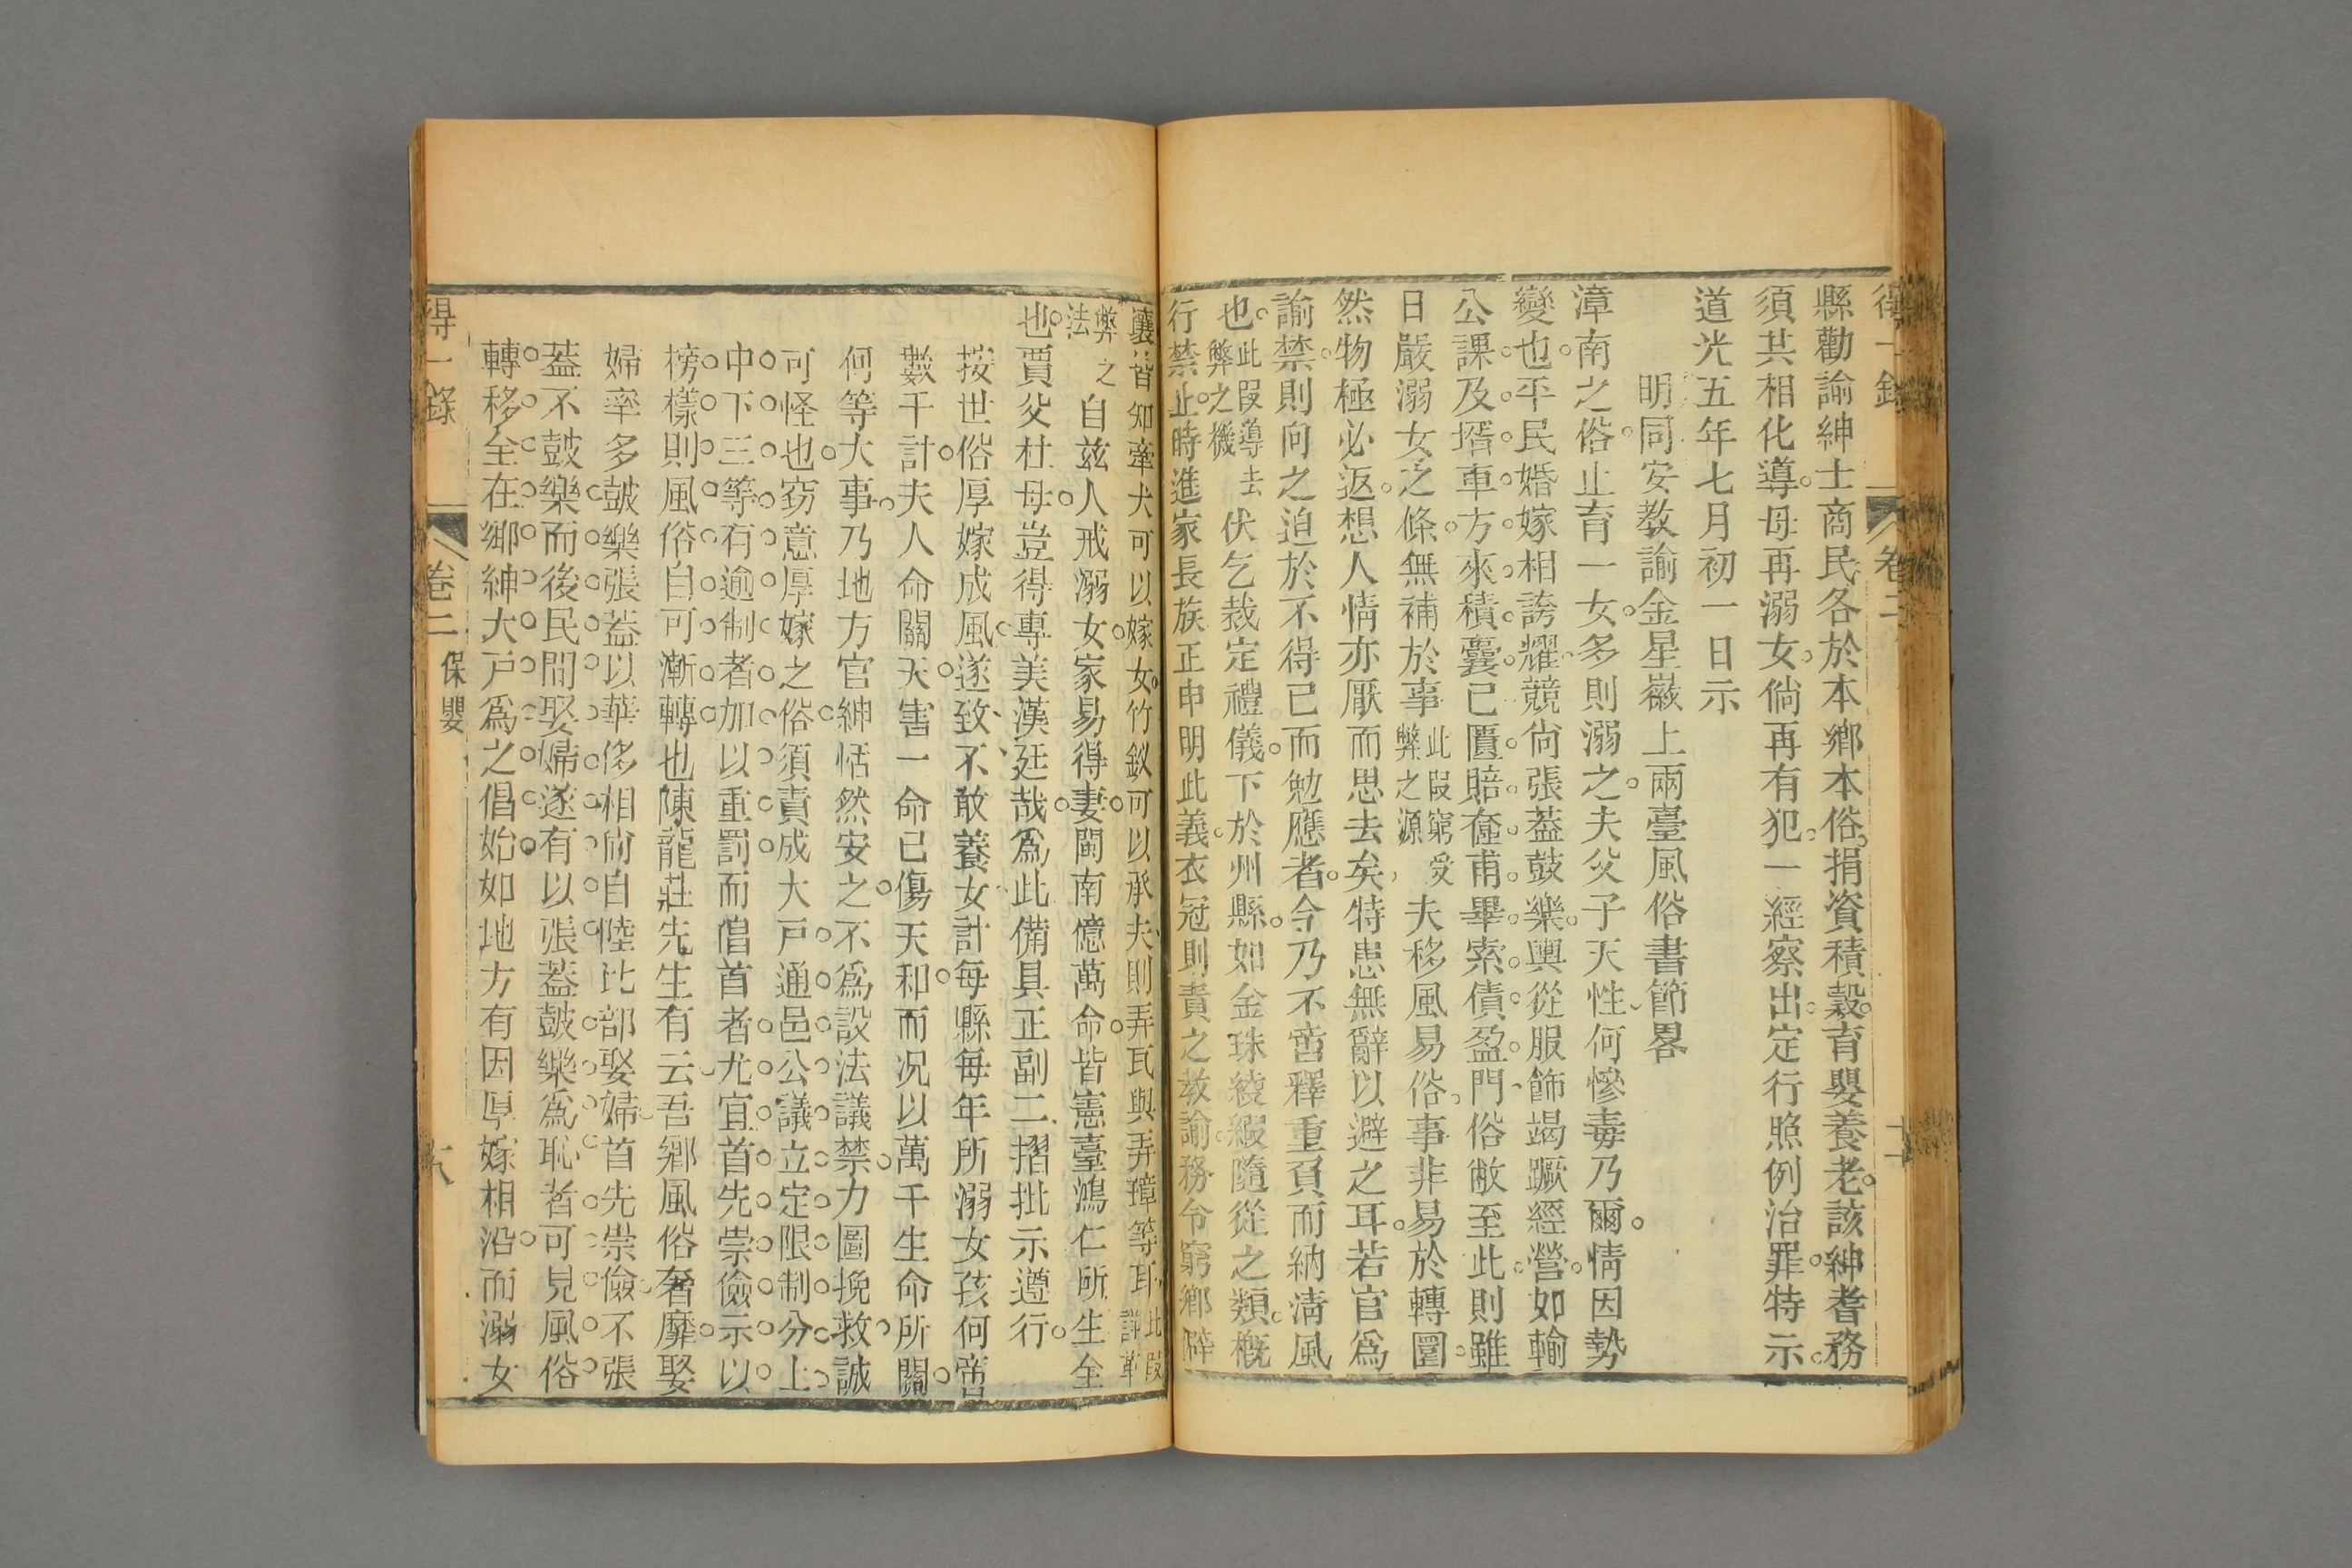 得一錄 卷二
縣勸諭紳士商民各於本鄉本俗捐資積穀育嬰養老該紳耆務
須共相化導毋再溺女倘再有犯一經察出定行照例治罪特示
道光五年七月初一日示
明同安教諭金星嶶上兩臺風俗書節畧
漳南之俗止育一女多則溺之夫父子天性何慘毒乃爾情因勢
變也平民婚嫁相誇耀競尙張葢鼓樂輿從服飾竭蹶經營如輸
公課及壻車方來積囊已匱賠奩甫畢索債盈門俗敝至此則雖
日嚴溺女之條無補於事此叚窮受弊之源夫移風易俗事非易於轉圜
然物極必返想人情亦厭而思去矣特患無辭以避之耳若官爲
諭禁則向之迫於不得已而勉應者今乃不啻釋重負而納淸風
也此叚導去弊之機伏乞裁定禮儀下於州縣如金珠綾緞隨從之類槪
行禁止時進家長族正申明此義衣冠則責之教諭務令窮鄉僻
壤皆知牽犬可以嫁女竹釵可以承夫則弄瓦與弄璋等耳此叚詳革
弊之法自兹人戒溺女家易得妻閩南億萬命皆憲臺鴻仁所生全
也賈父杜母豈得專美漢廷哉爲此備具正副二摺批示遵行
按世俗厚嫁成風遂致不敢養女計每縣每年所溺女孩何啻
數千計夫人命關天害一命已傷天和而况以萬千生命所關
何等大事乃地方官紳恬然安之不爲設法議禁力圖挽救誠
可怪也窃意厚嫁之俗須責成大戸通邑公議立定限制分上
中下三等有逾制者加以重罰而倡首者尤宜首先崇儉示以
榜樣則風俗自可漸轉也陳龍莊先生有云吾鄉風俗奢靡娶
婦率多鼓樂張葢以華侈相尙自陸比部娶婦首先崇儉不張
葢不鼓樂而後民間娶婦遂有以張葢鼓樂爲恥者可見風俗
轉移全在鄉紳大戸爲之倡始如地方有因厚嫁相沿而溺女
得一錄 卷二 保嬰